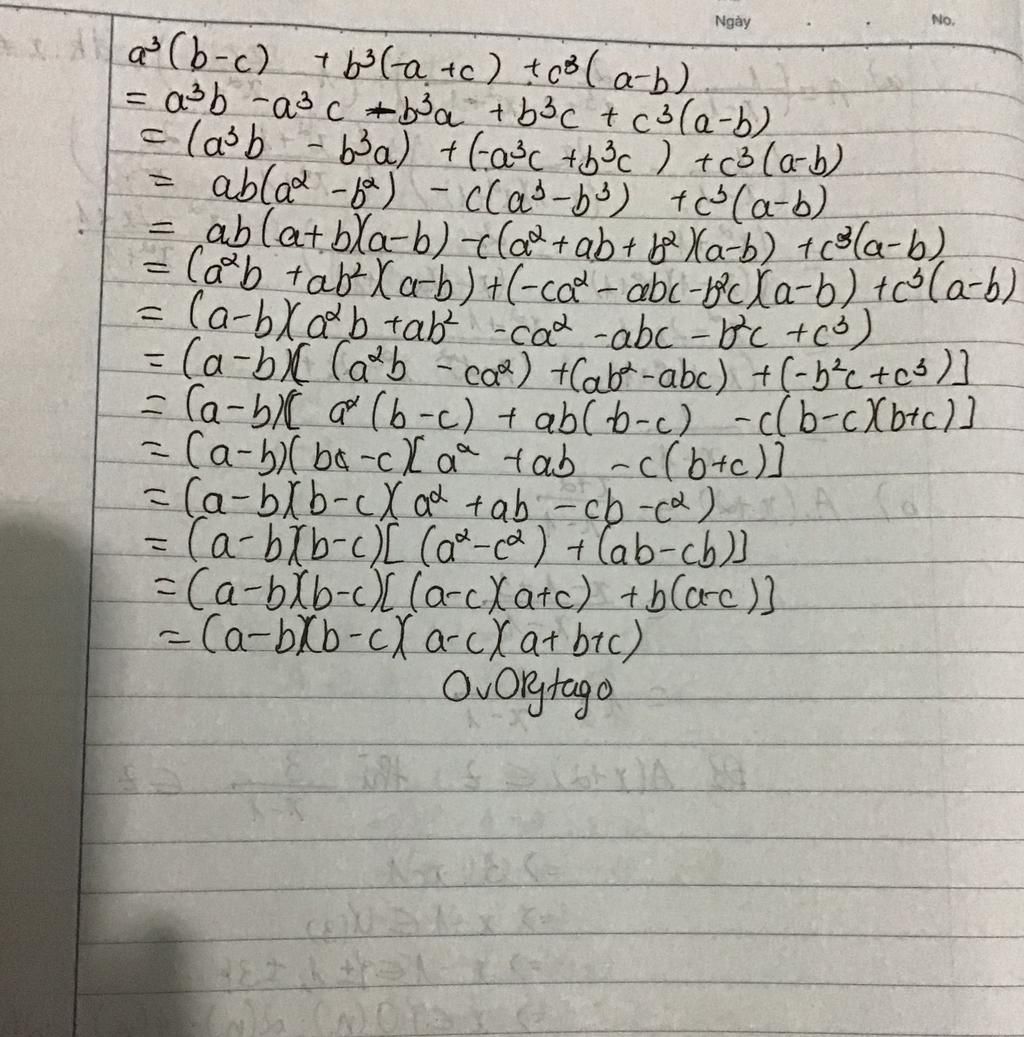 Ngày . . No.
a³(b-c) + b³(-a+c) + c³(a-b)
= a³b - a³c - b³a + b³c + c³(a-b)
= (a³b - b³a) + (-a³c + b³c) + c³(a-b)
= ab(a² - b²) - c(a³ - b³) + c³(a-b)
= ab(a+b)(a-b) - c(a² + ab + b²)(a-b) + c³(a-b)
= (a²b + ab²)(a-b) + (-ca² - abc - b²c)(a-b) + c³(a-b)
= (a-b)(a²b + ab² - ca² - abc - b²c + c³)
= (a-b)[(a²b - ca²) + (ab² - abc) + (-b²c + c³)]
= (a-b)[a²(b-c) + ab(b-c) - c(b-c)(b+c)]
= (a-b)(b-c)[a² + ab - c(b+c)]
= (a-b)(b-c)(a² + ab - cb - c²)
= (a-b)(b-c)[(a² - c²) + (ab - cb)]
= (a-b)(b-c)[(a-c)(a+c) + b(a-c)]
= (a-b)(b-c)(a-c)(a+b+c)
OvOPytago